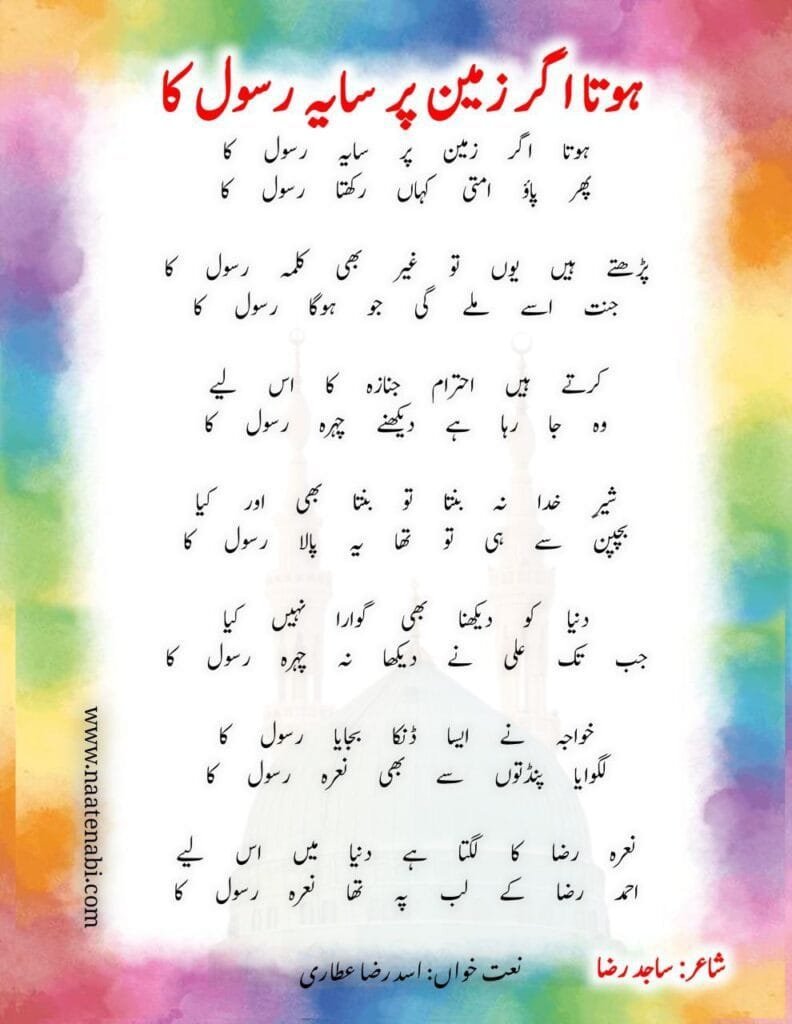 ہوتا اگر زمین پر سایہ رسول کا
ہوتا اگر زمین پر سایہ رسول کا
پھر پاؤ امتی کہاں رکھتا رسول کا
پڑھتے ہیں یوں تو غیر بھی کلمہ رسول کا
جنت اسے ملے گی جو ہوگا رسول کا
کرتے ہیں احترام جنازہ کا اس لیے
وہ جا رہا ہے دیکھنے چہرہ رسول کا
شیرِ خدا نہ بنتا تو بنتا بھی اور کیا
بچپن سے ہی تو تھا یہ پالا رسول کا
دنیا کو دیکھنا بھی گوارا نہیں کیا
جب تک علی نے دیکھا نہ چہرہ رسول کا
خواجہ نے ایسا ڈنکا بجایا رسول کا
لگوایا پنڈتوں سے بھی نعرہ رسول کا
نعرہ رضا کا لگتا ہے دنیا میں اس لیے
احمد رضا کے لب پہ تھا نعرہ رسول کا
شاعر: ساجد رضا
نعت خواں: اسد رضا عطاری
www.naatenabi.com